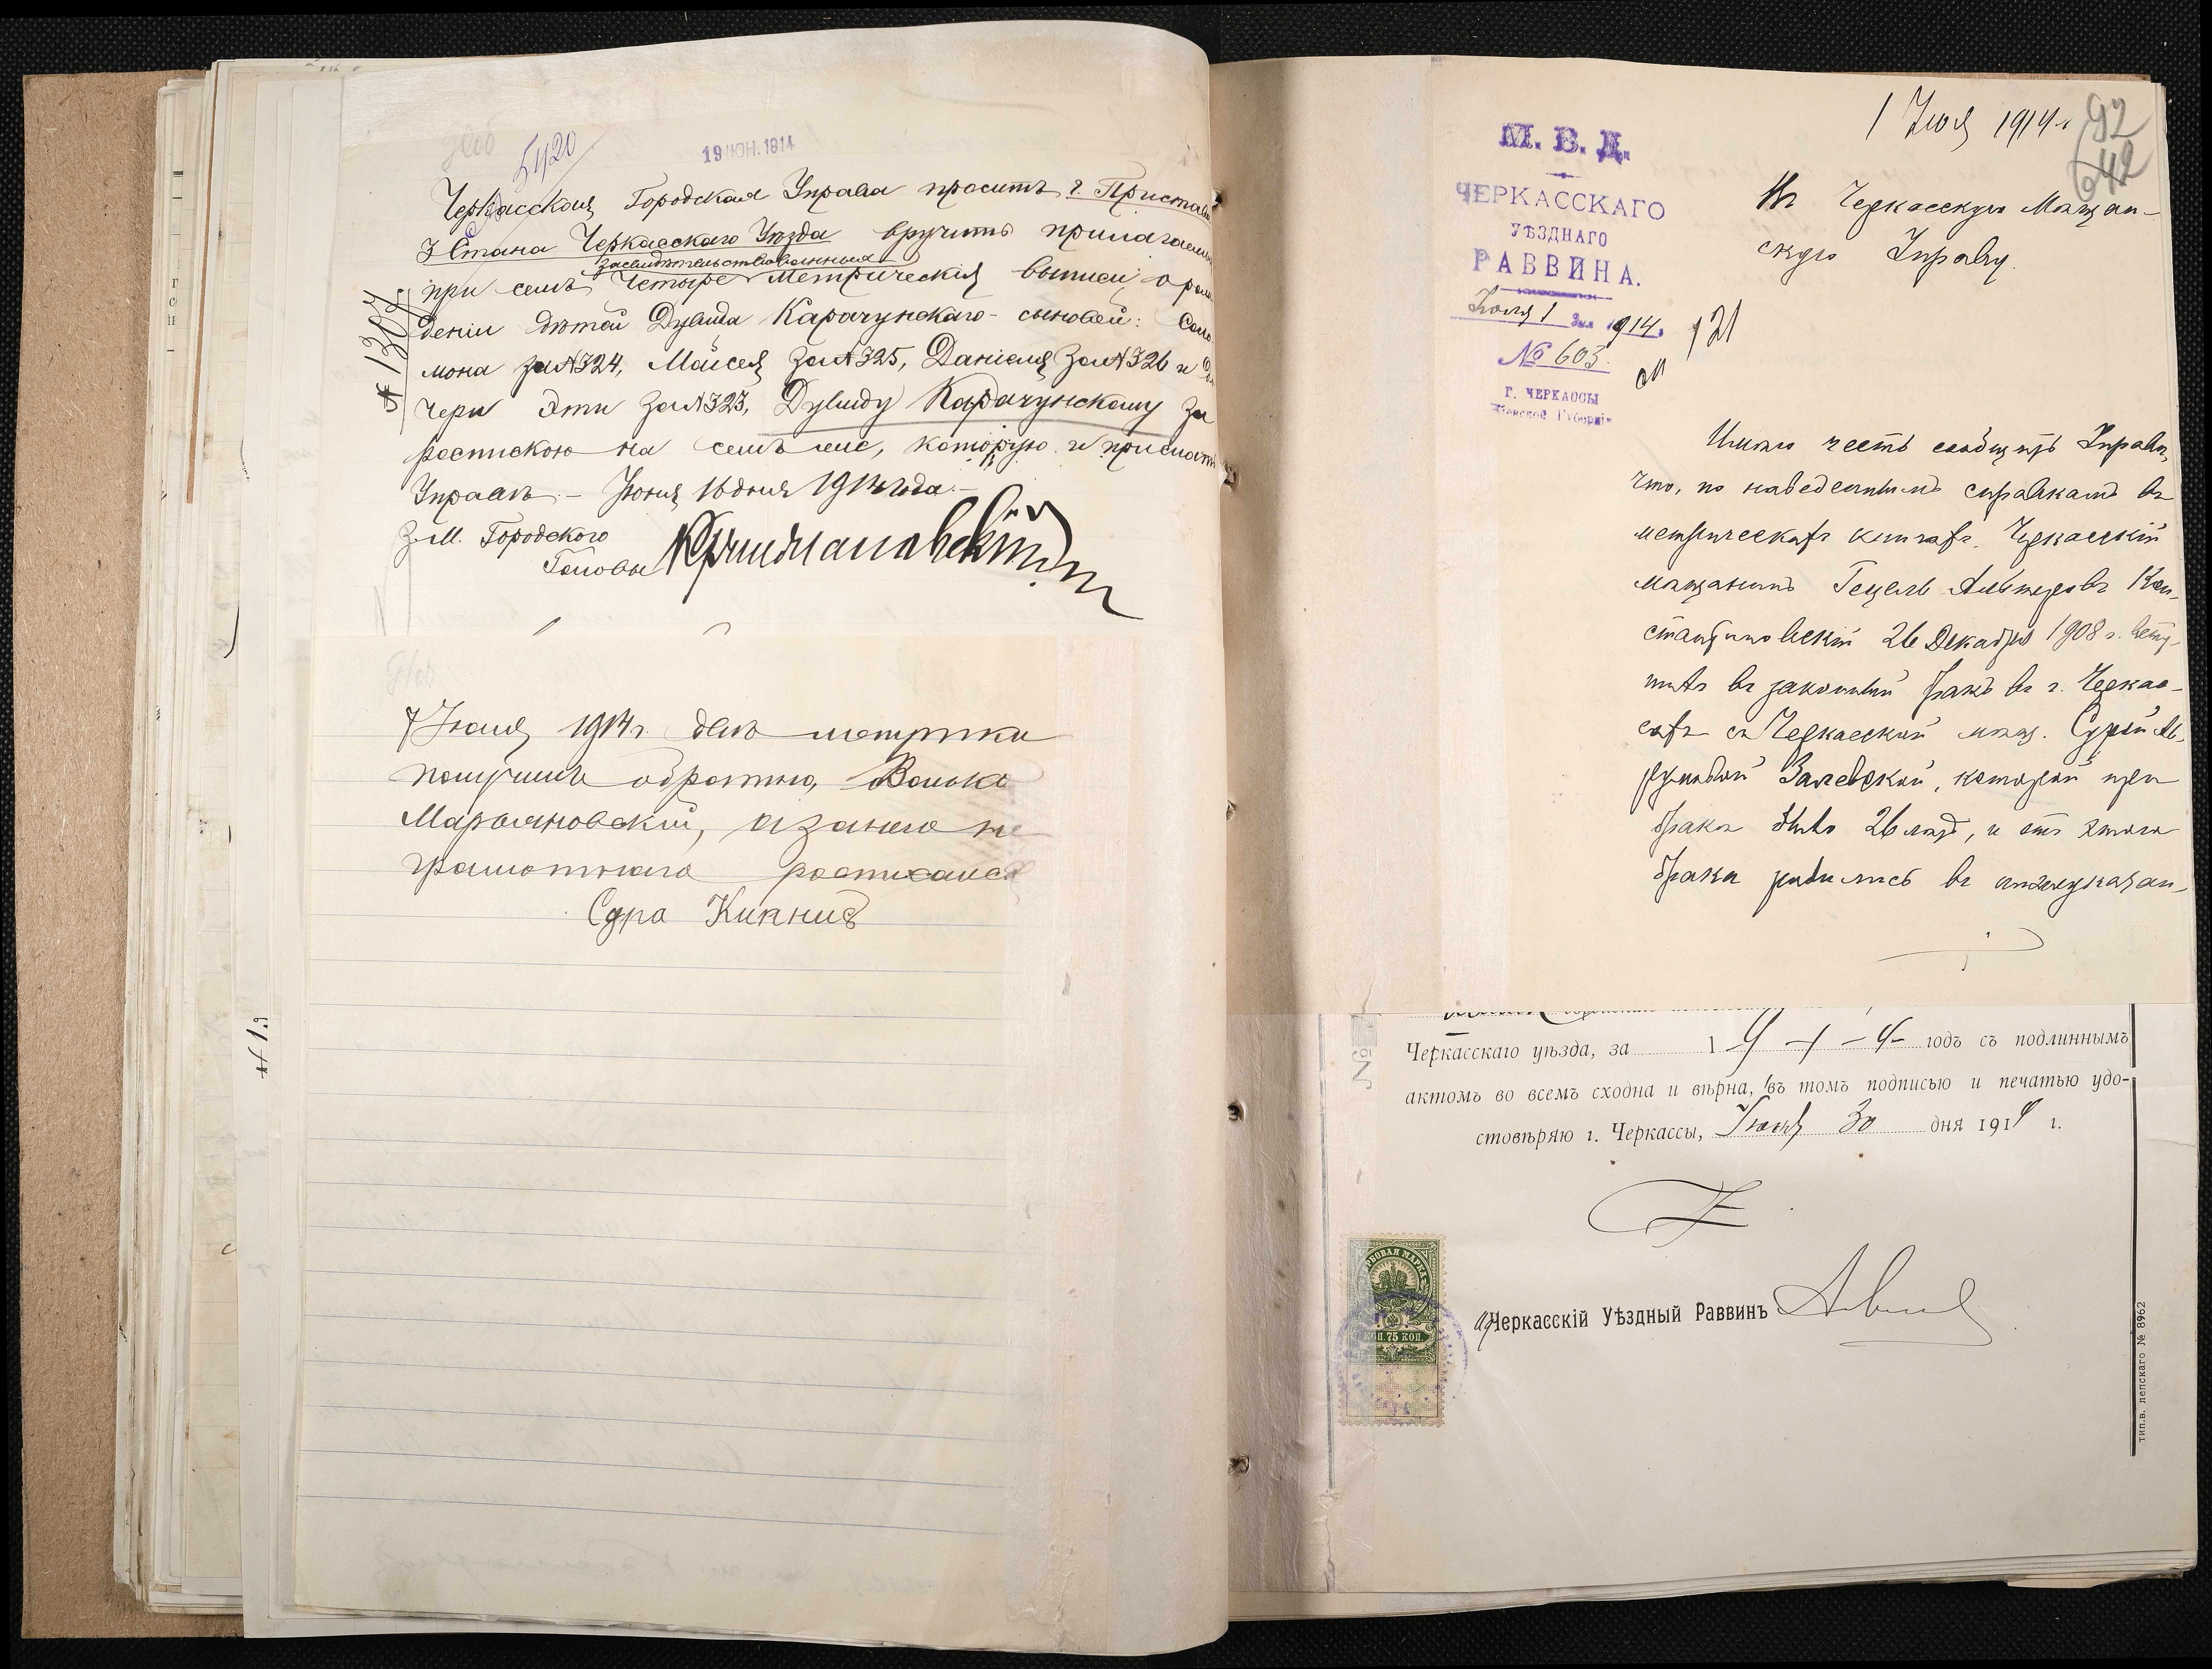 5420
19 ІЮН. 1914
Черкасская Городская Управа проситъ г. Пристава
3 Стана Черкасскаго Уѣзда вручить прилагаемыя
засвидѣтельствованныя
при семъ четыре метрическія выписи о рож
деніи дѣтей Дувида Карачунскаго - сыновей: Соло
мона за №324, Мойсея за №325, Даніеля за №326 и до
чери Эти за №323, Дувиду Карачунскому за
роспискою на семъ же, которую и прислать
Управѣ. - Іюня 16 дня 1914 года. -
З. М. Городского
Головы
7 Іюля 1914 г. двѣ метрики
получилъ обратно, Волько
Марьяновскій, а за него не
грамотнаго росписался
Сура Кикнис
1 Июля 1914 г.
92
642
М. В. Д.
ЧЕРКАССКАГО
УѢЗДНАГО
РАВВИНА.
Июля 1 дня 1914.
№ 603.
Г. ЧЕРКАССЫ
Кіевской Губерніи
121
Въ Черкасскую Мѣщан-
скую Управу.
Имѣю честь сообщить Управѣ,
что, по наведеннымъ справкамъ въ
метрическихъ книгахъ, Черкасскій
мѣщанинъ Гецель Альтеровъ Кон-
стантиновскій 26 Декабря 1908 г. всту-
пилъ въ законный бракъ въ г. Черкас-
сахъ съ Черкасской мѣщ. Сурой
Залевской, которой при
бракѣ было 26 лѣтъ, и отъ этого
брака родились въ нижеуказан-
Черкасскаго уѣзда, за 1914 годъ съ подлиннымъ
актомъ во всемъ сходна и вѣрна, въ томъ подписью и печатью удо-
стовѣряю г. Черкассы, Іюня 30 дня 1914 г.
ГЕРБОВАЯ МАРКА
КОП. 75 КОП.
Черкасскій Уѣздный Раввинъ
тип. в. лепскаго № 8962